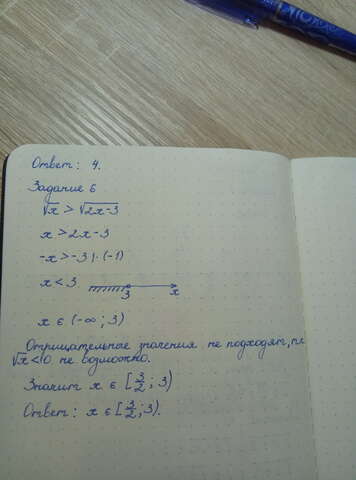 Ответ: 4.
Задание 6
√x > √2x-3
x > 2x-3
-x > -3 | · (-1)
x < 3
3 x
x ∈ (-∞ ; 3)
Отрицательные значения не подходят, т.к
√x < 0 не возможно.
Значит x ∈ [3/2 ; 3)
Ответ: x ∈ [3/2 ; 3).